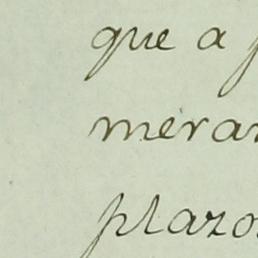 que a
meran
plazo